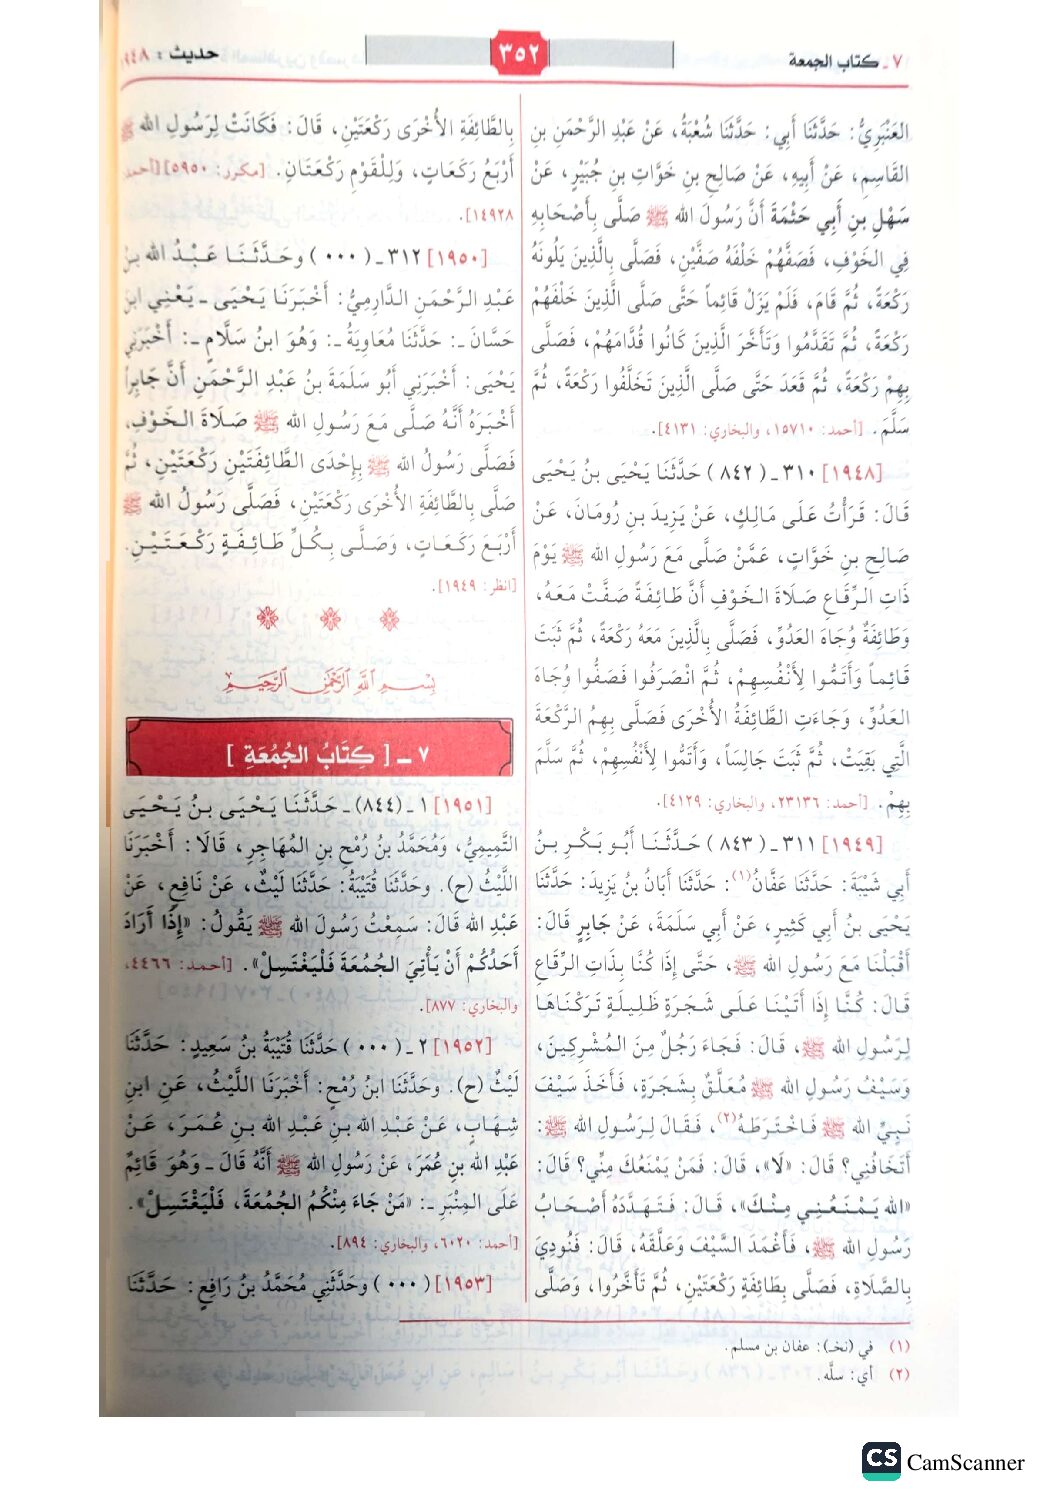 ٧ ـ كتاب الجمعة
٣٥٢
حديث : ١٩٤٨
العَنْبَرِيُّ: حَدَّثَنَا أَبِي: حَدَّثَنَا شُعْبَةُ، عَنْ عَبْدِ الرَّحْمَنِ بنِ
القَاسِمِ، عَنْ أَبِيهِ، عَنْ صَالِحِ بنِ خَوَّاتِ بنِ جُبَيْرٍ، عَنْ
سَهْلِ بنِ أَبِي حَثْمَةَ أَنَّ رَسُولَ الله ﷺ صَلَّى بِأَصْحَابِهِ
فِي الخَوْفِ، فَصَفَّهُمْ خَلْفَهُ صَفَّيْنِ، فَصَلَّى بِالَّذِينَ يَلُونَهُ
رَكْعَةً، ثُمَّ قَامَ، فَلَمْ يَزَلْ قَائِماً حَتَّى صَلَّى الَّذِينَ خَلْفَهُمْ
رَكْعَةً، ثُمَّ تَقَدَّمُوا وَتَأَخَّرَ الَّذِينَ كَانُوا قُدَّامَهُمْ، فَصَلَّى
بِهِمْ رَكْعَةً، ثُمَّ قَعَدَ حَتَّى صَلَّى الَّذِينَ تَخَلَّفُوا رَكْعَةً، ثُمَّ
سَلَّمَ. [أحمد: ١٥٧١٠، والبخاري: ٤١٣١].
[١٩٤٨] ٣١٠ ـ ( ٨٤٢ ) حَدَّثَنَا يَحْيَى بنُ يَحْيَى
قَالَ: قَرَأْتُ عَلَى مَالِكٍ، عَنْ يَزِيدَ بنِ رُومَانَ، عَنْ
صَالِحِ بنِ خَوَّاتٍ، عَمَّنْ صَلَّى مَعَ رَسُولِ الله ﷺ يَوْمَ
ذَاتِ الرِّقَاعِ صَلَاةَ الخَوْفِ أَنَّ طَائِفَةً صَفَّتْ مَعَهُ،
وَطَائِفَةٌ وُجَاهَ العَدُوِّ، فَصَلَّى بِالَّذِينَ مَعَهُ رَكْعَةً، ثُمَّ ثَبَتَ
قَائِماً وَأَتَمُّوا لِأَنْفُسِهِمْ، ثُمَّ انْصَرَفُوا فَصَفُّوا وُجَاهَ
العَدُوِّ، وَجَاءَتِ الطَّائِفَةُ الأُخْرَى فَصَلَّى بِهِمُ الرَّكْعَةَ
الَّتِي بَقِيَتْ، ثُمَّ ثَبَتَ جَالِساً، وَأَتَمُّوا لِأَنْفُسِهِمْ، ثُمَّ سَلَّمَ
بِهِمْ. [أحمد: ٢٣١٣٦، والبخاري: ٤١٢٩].
[١٩٤٩] ٣١١ ـ ( ٨٤٣ ) حَدَّثَنَا أَبُو بَكْرِ بنُ
أَبِي شَيْبَةَ: حَدَّثَنَا عَفَّانُ(١): حَدَّثَنَا أَبَانُ بنُ يَزِيدَ: حَدَّثَنَا
يَحْيَى بنُ أَبِي كَثِيرٍ، عَنْ أَبِي سَلَمَةَ، عَنْ جَابِرٍ قَالَ:
أَقْبَلْنَا مَعَ رَسُولِ الله ﷺ، حَتَّى إِذَا كُنَّا بِذَاتِ الرِّقَاعِ
قَالَ: كُنَّا إِذَا أَتَيْنَا عَلَى شَجَرَةٍ ظَلِيلَةٍ تَرَكْنَاهَا
لِرَسُولِ الله ﷺ، قَالَ: فَجَاءَ رَجُلٌ مِنَ المُشْرِكِينَ،
وَسَيْفُ رَسُولِ الله ﷺ مُعَلَّقٌ بِشَجَرَةٍ، فَأَخَذَ سَيْفَ
نَبِيِّ الله ﷺ فَاخْتَرَطَهُ(٢)، فَقَالَ لِرَسُولِ الله ﷺ:
أَتَخَافُنِي؟ قَالَ: «لَا»، قَالَ: فَمَنْ يَمْنَعُكَ مِنِّي؟ قَالَ:
«الله يَمْنَعُنِي مِنْكَ»، قَالَ: فَتَهَدَّدَهُ أَصْحَابُ
رَسُولِ الله ﷺ، فَأَغْمَدَ السَّيْفَ وَعَلَّقَهُ، قَالَ: فَنُودِيَ
بِالصَّلَاةِ، فَصَلَّى بِطَائِفَةٍ رَكْعَتَيْنِ، ثُمَّ تَأَخَّرُوا، وَصَلَّى
بِالطَّائِفَةِ الأُخْرَى رَكْعَتَيْنِ، قَالَ: فَكَانَتْ لِرَسُولِ الله ﷺ
أَرْبَعُ رَكَعَاتٍ، وَلِلْقَوْمِ رَكْعَتَانِ. [مكرر: ٥٩٥٠] [أحمد:
١٤٩٢٨].
[١٩٥٠] ٣١٢ ـ ( ٠٠٠ ) وحَدَّثَنَا عَبْدُ الله بنُ
عَبْدِ الرَّحْمَنِ الدَّارِمِيُّ: أَخْبَرَنَا يَحْيَى ـ يَعْنِي ابنَ
حَسَّانَ ـ: حَدَّثَنَا مُعَاوِيَةُ ـ: وَهُوَ ابنُ سَلَّامٍ ـ: أَخْبَرَنِي
يَحْيَى: أَخْبَرَنِي أَبُو سَلَمَةَ بنُ عَبْدِ الرَّحْمَنِ أَنَّ جَابِراً
أَخْبَرَهُ أَنَّهُ صَلَّى مَعَ رَسُولِ الله ﷺ صَلَاةَ الخَوْفِ،
فَصَلَّى رَسُولُ الله ﷺ بِإِحْدَى الطَّائِفَتَيْنِ رَكْعَتَيْنِ، ثُمَّ
صَلَّى بِالطَّائِفَةِ الأُخْرَى رَكْعَتَيْنِ، فَصَلَّى رَسُولُ الله ﷺ
أَرْبَعَ رَكَعَاتٍ، وَصَلَّى بِكُلِّ طَائِفَةٍ رَكْعَتَيْنِ.
[انظر: ١٩٤٩].
بِسْمِ اللَّهِ الرَّحْمَنِ الرَّحِيمِ
٧ ـ [ كِتَابُ الجُمُعَةِ ]
[١٩٥١] ١ ـ (٨٤٤) ـ حَدَّثَنَا يَحْيَى بنُ يَحْيَى
التَّمِيمِيُّ، وَمُحَمَّدُ بنُ رُمْحِ بنِ المُهَاجِرِ، قَالَا: أَخْبَرَنَا
اللَّيْثُ (ح). وحَدَّثَنَا قُتَيْبَةُ: حَدَّثَنَا لَيْثٌ، عَنْ نَافِعٍ، عَنْ
عَبْدِ الله قَالَ: سَمِعْتُ رَسُولَ الله ﷺ يَقُولُ: «إِذَا أَرَادَ
أَحَدُكُمْ أَنْ يَأْتِيَ الجُمُعَةَ فَلْيَغْتَسِلْ». [أحمد: ٤٤٦٦،
والبخاري: ٨٧٧].
[١٩٥٢] ٢ ـ ( ٠٠٠ ) حَدَّثَنَا قُتَيْبَةُ بنُ سَعِيدٍ: حَدَّثَنَا
لَيْثٌ (ح). وحَدَّثَنَا ابنُ رُمْحٍ: أَخْبَرَنَا اللَّيْثُ، عَنِ ابنِ
شِهَابٍ، عَنْ عَبْدِ الله بنِ عَبْدِ الله بنِ عُمَرَ، عَنْ
عَبْدِ الله بنِ عُمَرَ، عَنْ رَسُولِ الله ﷺ أَنَّهُ قَالَ ـ وَهُوَ قَائِمٌ
عَلَى المِنْبَرِ ـ: «مَنْ جَاءَ مِنْكُمُ الجُمُعَةَ، فَلْيَغْتَسِلْ».
[أحمد: ٦٠٢٠، والبخاري: ٨٩٤].
[١٩٥٣] ( ٠٠٠ ) وحَدَّثَنِي مُحَمَّدُ بنُ رَافِعٍ: حَدَّثَنَا
(١) في (نخـ): عفان بن مسلم.
(٢) أي: سلَّه.
CS CamScanner